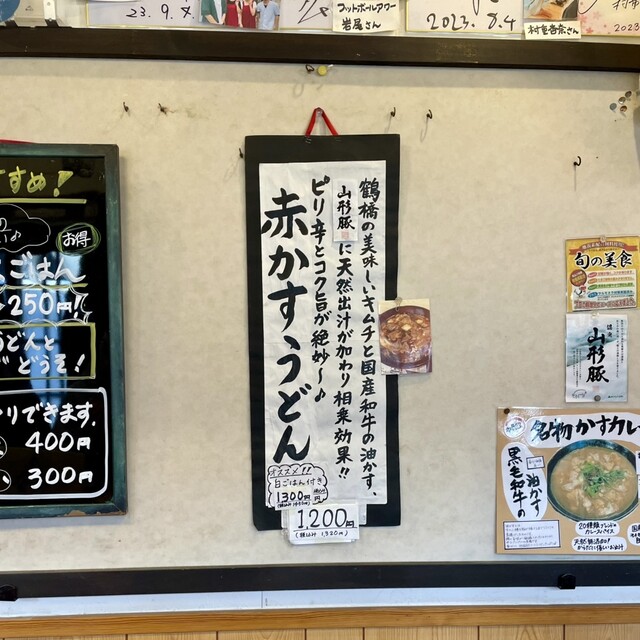 23.9.4
フットボールアワー
岩尾さん
2023.8.4
村重杏奈さん
2023
すめ!
お得
ごはん
250円!
うどんと
どうぞ!
できます。
400円
300円
鶴橋の美味しいキムチと国産和牛の油かす、
山形豚に天然出汁が加わり相乗効果!!
ピリ辛とコク旨が絶妙〜♪
赤かすうどん
オススメ!!
白ごはん付き
1300円
1,200円
(税込み 1,320円)
旬の美食
山形豚
名物かすカレー
黒毛和牛の
油かす
20種類ブレンドの
カレースパイス
国産
天然無添加!
からだに優しいお出汁